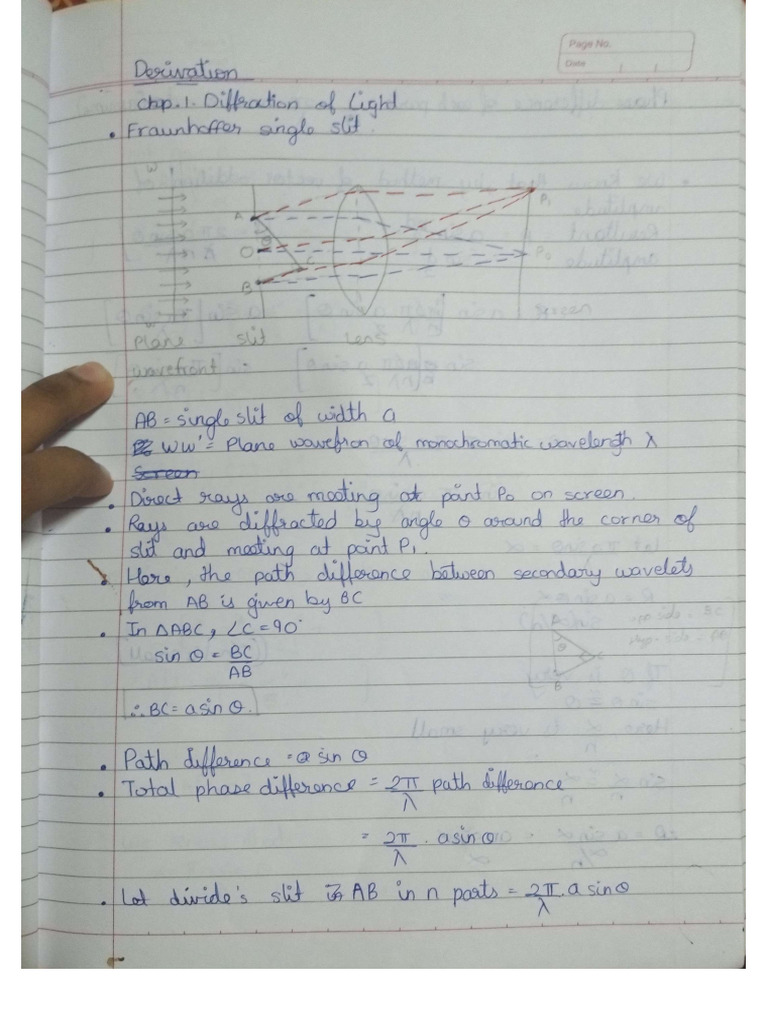 Page No.
Date
Derivation
Chap. 1. Diffration of Light
• Fraunhoffer single slit.
W
A
θ
O
C
B
P₁
P₀
W'
screen
Plane slit Lens
wavefront
AB = single slit of width a
WW' = Plane wavefron of monochromatic wavelength λ
Screen
• Direct rays are meeting at point P₀ on screen.
• Rays are diffracted by angle θ around the corner of
slit and meeting at point P₁.
• Here, the path difference between secondary wavelets
from AB is given by BC
• In △ABC, ∠C = 90°
sin θ = BC
AB
∴ BC = a sin θ.
A
θ
C
B
• Path difference = a sin θ
• Total phase difference = 2π/λ path difference
= 2π/λ . a sin θ
• Let divide's slit AB in n parts = 2π/λ . a sin θ